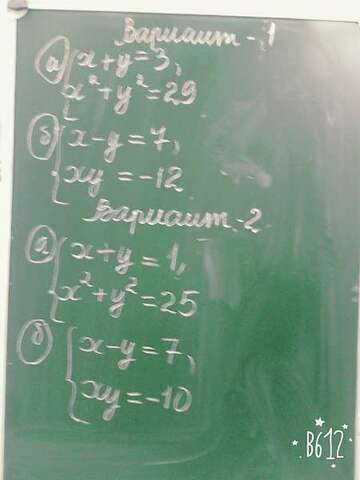 Вариант-1
а) x+y=3,
x²+y²=29
б) x-y=7,
xy=-12
Вариант-2
а) x+y=1,
x²+y²=25
б) x-y=7,
xy=-10
B612